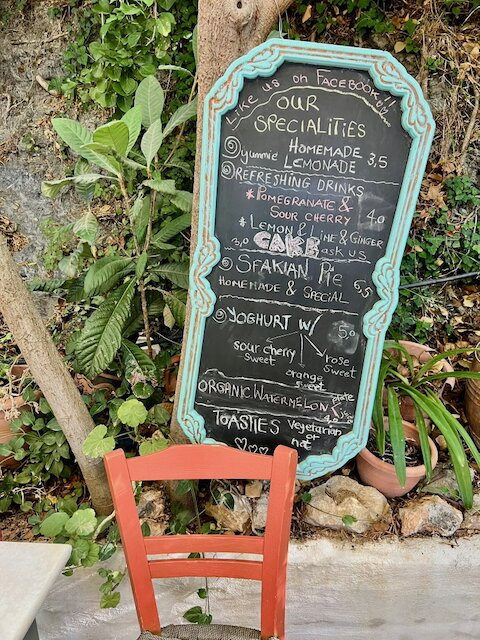 Like us on Facebook!!
OUR
SPECIALITIES
yummie HOMEMADE 3,5
LEMONADE
REFRESHING DRINKS
* POMEGRANATE &
SOUR CHERRY 4.0
* LEMON & LIME & GINGER
3,0 CAKE ask us
SFAKIAN PIE
HOMEMADE & SPECIAL 6,5
YOGHURT W/ 5,0
sour cherry sweet
orange sweet
rose sweet
ORGANIC WATERMELON plate
TOASTIES Vegetarian
or
not